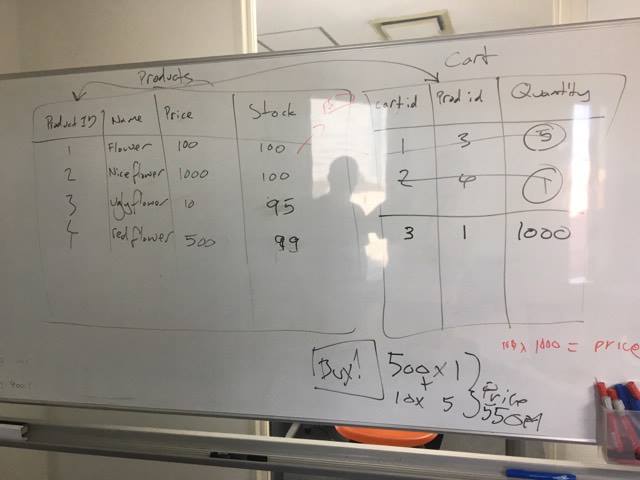 Products
Product ID Name Price Stock
1 Flower 100 100
2 Nice flower 1000 100
3 Ugly flower 10 95
4 red flower 500 99
Cart
cart id Prod id Quantity
1 3 5
2 4 1
3 1 1000
x 1000 = price
Buy!
500 x 1
+
10 x 5
Price